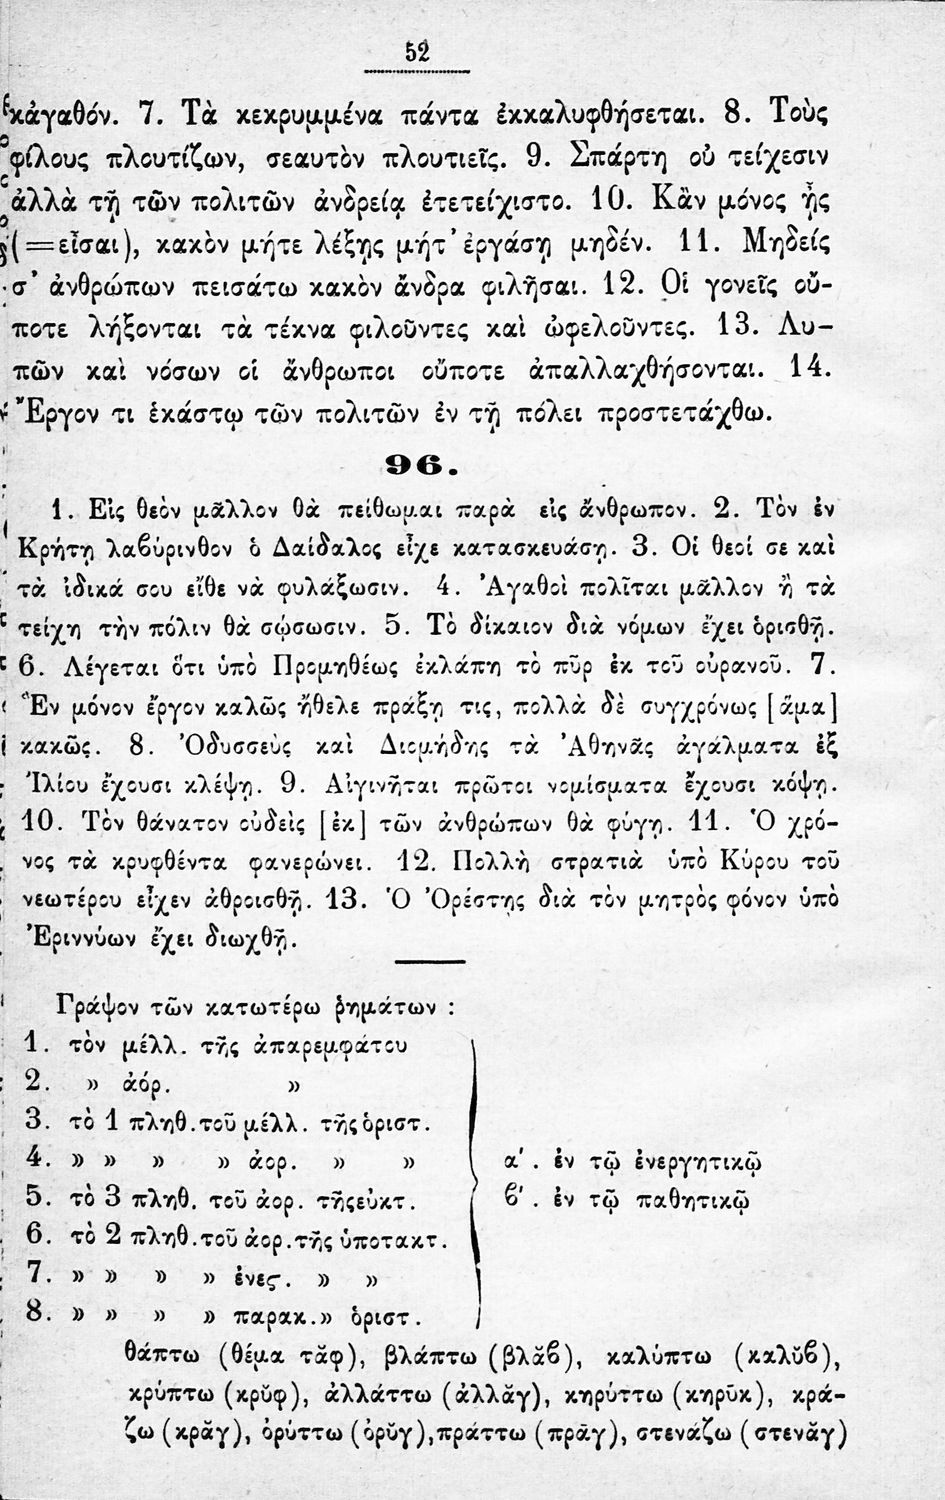 52
κἀγαθόν. 7. Τὰ κεκρυμμένα πάντα ἐκκαλυφθήσεται. 8. Τοὺς
φίλους πλουτίζων, σεαυτὸν πλουτιεῖς. 9. Σπάρτη οὐ τείχεσιν
ἀλλὰ τῇ τῶν πολιτῶν ἀνδρείᾳ ἐτετείχιστο. 10. Κἂν μόνος ᾖς
(=εἶσαι), κακὸν μήτε λέξῃς μήτ' ἐργάσῃ μηδέν. 11. Μηδείς
σ' ἀνθρώπων πεισάτω κακὸν ἄνδρα φιλῆσαι. 12. Οἱ γονεῖς οὔ-
ποτε λήξονται τὰ τέκνα φιλοῦντες καὶ ὠφελοῦντες. 13. Λυ-
πῶν καὶ νόσων οἱ ἄνθρωποι οὔποτε ἀπαλλαχθήσονται. 14.
Ἔργον τι ἑκάστῳ τῶν πολιτῶν ἐν τῇ πόλει προστετάχθω.
96.
1. Εἰς θεὸν μᾶλλον θὰ πείθωμαι παρὰ εἰς ἄνθρωπον. 2. Τὸν ἐν
Κρήτῃ λαβύρινθον ὁ Δαίδαλος εἶχε κατασκευάσῃ. 3. Οἱ θεοί σε καὶ
τὰ ἰδικά σου εἴθε νὰ φυλάξωσιν. 4. Ἀγαθοὶ πολῖται μᾶλλον ἢ τὰ
τείχη τὴν πόλιν θὰ σῴσωσιν. 5. Τὸ δίκαιον διὰ νόμων ἔχει ὁρισθῆ.
6. Λέγεται ὅτι ὑπὸ Προμηθέως ἐκλάπη τὸ πῦρ ἐκ τοῦ οὐρανοῦ. 7.
Ἓν μόνον ἔργον καλῶς ἤθελε πράξῃ τις, πολλὰ δὲ συγχρόνως [ἅμα]
κακῶς. 8. Ὀδυσσεὺς καὶ Διομήδης τὰ Ἀθηνᾶς ἀγάλματα ἐξ
Ἰλίου ἔχουσι κλέψῃ. 9. Αἰγινῆται πρῶτοι νομίσματα ἔχουσι κόψῃ.
10. Τὸν θάνατον οὐδεὶς [ἐκ] τῶν ἀνθρώπων θὰ φύγῃ. 11. Ὁ χρό-
νος τὰ κρυφθέντα φανερώνει. 12. Πολλὴ στρατιὰ ὑπὸ Κύρου τοῦ
νεωτέρου εἶχεν ἀθροισθῆ. 13. Ὁ Ὀρέστης διὰ τὸν μητρὸς φόνον ὑπὸ
Ἐριννύων ἔχει διωχθῆ.
Γράψον τῶν κατωτέρω ῥημάτων :
1. τὸν μέλλ. τῆς ἀπαρεμφάτου
2. » ἀόρ. »
3. τὸ 1 πληθ. τοῦ μέλλ. τῆς ὁριστ.
4. » » » » ἀορ. » » α'. ἐν τῷ ἐνεργητικῷ
5. τὸ 3 πληθ. τοῦ ἀορ. τῆς εὐκτ. β'. ἐν τῷ παθητικῷ
6. τὸ 2 πληθ. τοῦ ἀορ. τῆς ὑποτακτ.
7. » » » » ἐνεϛ. » »
8. » » » » παρακ. » ὁριστ.
θάπτω (θέμα τᾰφ), βλάπτω (βλᾰβ), καλύπτω (καλῠβ),
κρύπτω (κρῠφ), ἀλλάττω (ἀλλᾰγ), κηρύττω (κηρῡκ), κρά-
ζω (κρᾰγ), ὀρύττω (ὀρῠγ), πράττω (πρᾱγ), στενάζω (στενᾰγ)